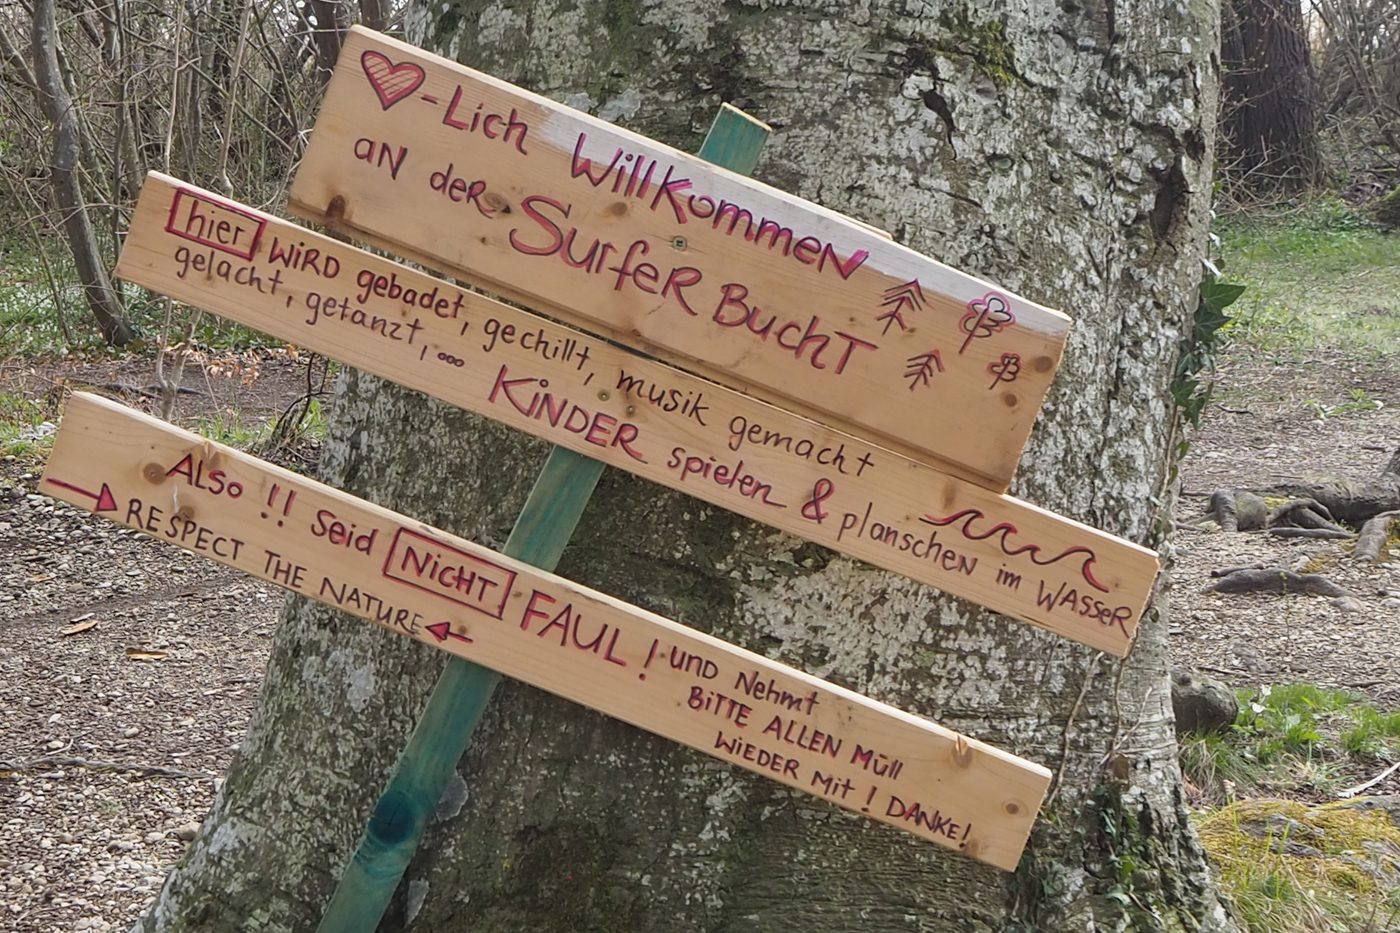 ♥-Lich WillKommeN
aN der SurfeR BuchT
hier WiRD gebadet, gechillt, musik gemacht
gelacht, getanzt,... KiNDER spielen & planscheN im WAsseR
ALSo !! seid NicHT FAUL! und Nehmt
BiTTE ALLEN Müll
→ RESPECT THE NATURE ← WiEDER Mit! DANKE!